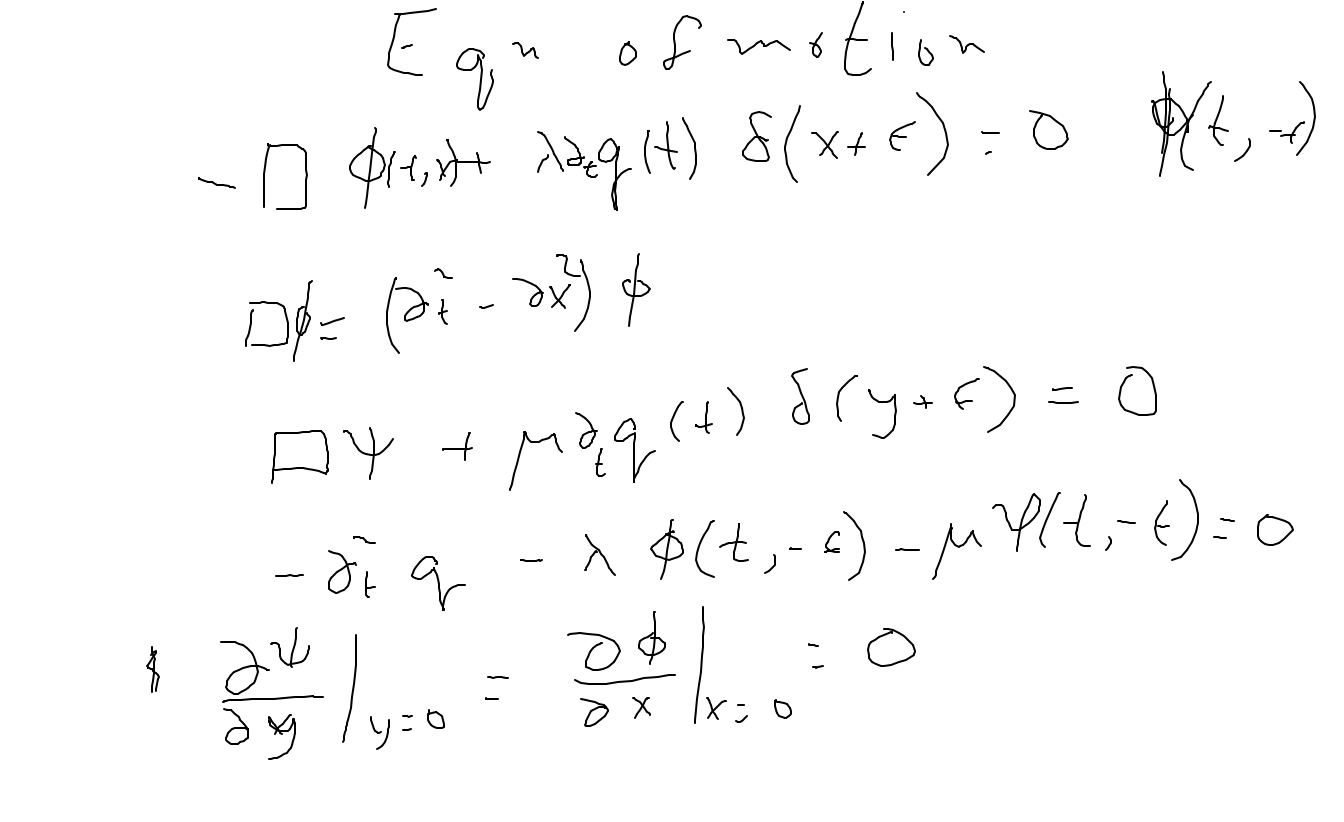 Eqn of motion
- □ ϕ(t,x) + λ∂ₜq(t) δ(x+ϵ) = 0 ϕ(t,-ϵ)
□ϕ = (∂ₜ² - ∂x²) ϕ
□ψ + μ∂ₜq(t) δ(y+ϵ) = 0
- ∂ₜ² q - λ ϕ(t,-ϵ) - μψ(t,-ϵ) = 0
∂ψ/∂y |y=0 = ∂ϕ/∂x |x=0 = 0